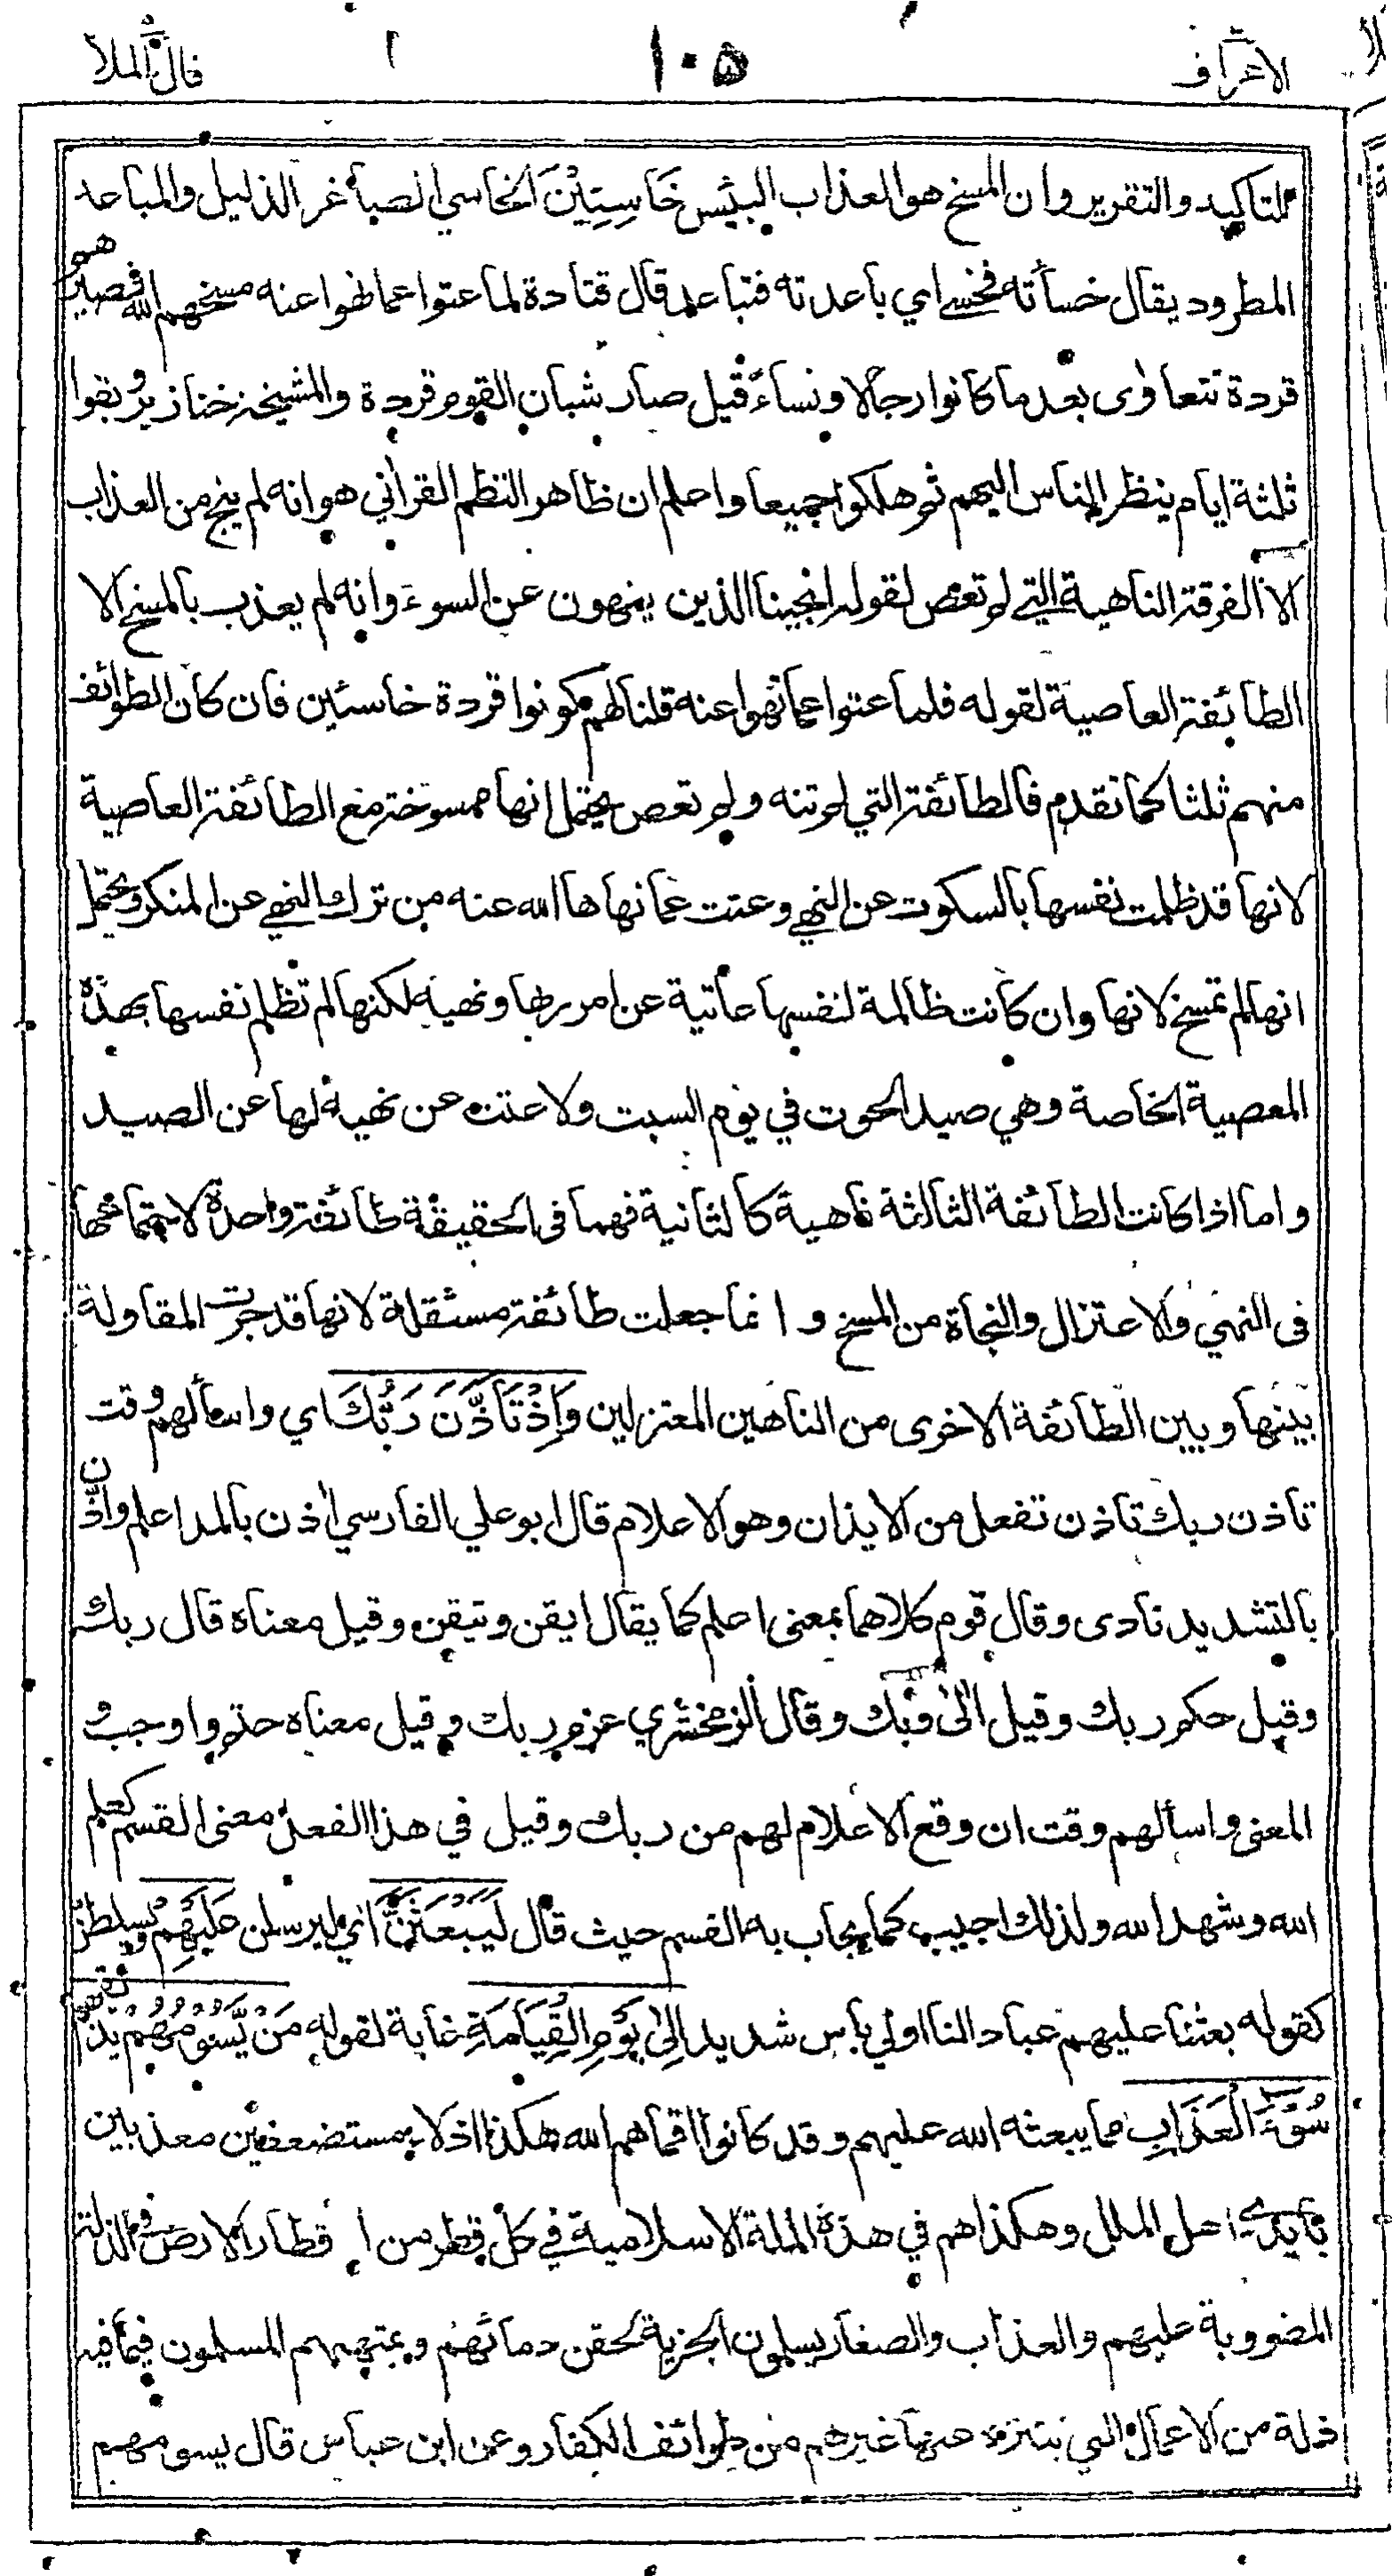 الاعراف ١٠٥ قال الملأ
للتاكيد والتقرير وان المسخ هو العذاب البئيس خَاسِئِيْنَ الخاسي الصاغر الذليل والمباعد
المطرود يقال خسأته فخسئ اي باعدته فتباعد قال قتادة لما عتوا عما نهوا عنه مسخهم الله فصيرهم
قردة تتعاوى بعد ما كانوا رجالا ونساءً قيل صار شبان القوم قردة والمشيخة خنازير وبقوا
ثلثة ايام ينظر الناس اليهم ثم هلكوا جميعا واعلم ان ظاهر النظم القرأني هو انه لم ينج من العذاب
الا الفرقة الناهية التي لم تعص لقوله انجينا الذين ينهون عن السوء وانه لم يعذب بالمسخ الا
الطائفة العاصية لقوله فلما عتوا عما نهوا عنه قلنا لهم كونوا قردة خاسئين فان كان الطوائف
منهم ثلثا كما تقدم فالطائفة التي لم تنه ولم تعص يحتمل انها ممسوخة مع الطائفة العاصية
لانها قد ظلمت نفسها بالسكوت عن النهي وعتت عما نهاها الله عنه من ترك النهي عن المنكر ويحتمل
انها لم تمسخ لانها وان كانت ظالمة لنفسها عاتية عن امر ربها ونهيه لكنها لم تظلم نفسها بهذه
المعصية الخاصة وهي صيد الحوت في يوم السبت ولا عتت عن نهيه لها عن الصيد
واما اذا كانت الطائفة الثالثة ناهية كالثانية فهما فى الحقيقة طائفة واحدة لاجتماعها
فى النهي والاعتزال والنجاة من المسخ وانما جعلت طائفة مستقلة لانها قد جرت المقاولة
بينها وبين الطائفة الاخرى من الناهين المعتزلين وَاِذْ تَاَذَّنَ رَبُّكَ اي واسألهم وقت
تاذن ربك تاذن تفعل من الايذان وهو الاعلام قال ابو علي الفارسي أذن بالمد اعلم واذّن
بالتشديد نادى وقال قوم كلاهما بمعنى اعلم كما يقال ايقن وتيقن وقيل معناه قال ربك
وقيل حكم ربك وقيل آلى ربك وقال الزمخشري عزم ربك وقيل معناه حتم واوجب و
المعنى واسألهم وقت ان وقع الاعلام لهم من ربك وقيل في هذا الفعل معنى القسم كعلم
الله وشهد الله ولذلك اجيب كما يجاب به القسم حيث قال لَيَبْعَثَنَّ اي ليرسلن عَلَيْهِمْ ويسلطن
كقوله بعثنا عليهم عبادا لنا اولي باس شديد اِلىٰ يَوْمِ الْقِيَامَةِ غاية لقوله مَنْ يَّسُوْمُهُمْ
سُوْٓءَ الْعَذَابِ مما يبعثه الله عليهم وقد كانوا اقماهم الله هكذا اذلاء مستضعفين معذبين
بايدي اهل الملل وهكذا هم في هذه الملة الاسلامية في كل قطر من اقطار الارض في الذلة
المضروبة عليهم والعذاب والصغار يسلمون الجزية لحقن دمائهم ويمتهنهم المسلمون فيما فيه
ذلة من الاعمال التي يتنزه عنها غيرهم من طوائف الكفار وعن ابن عباس قال يسومهم